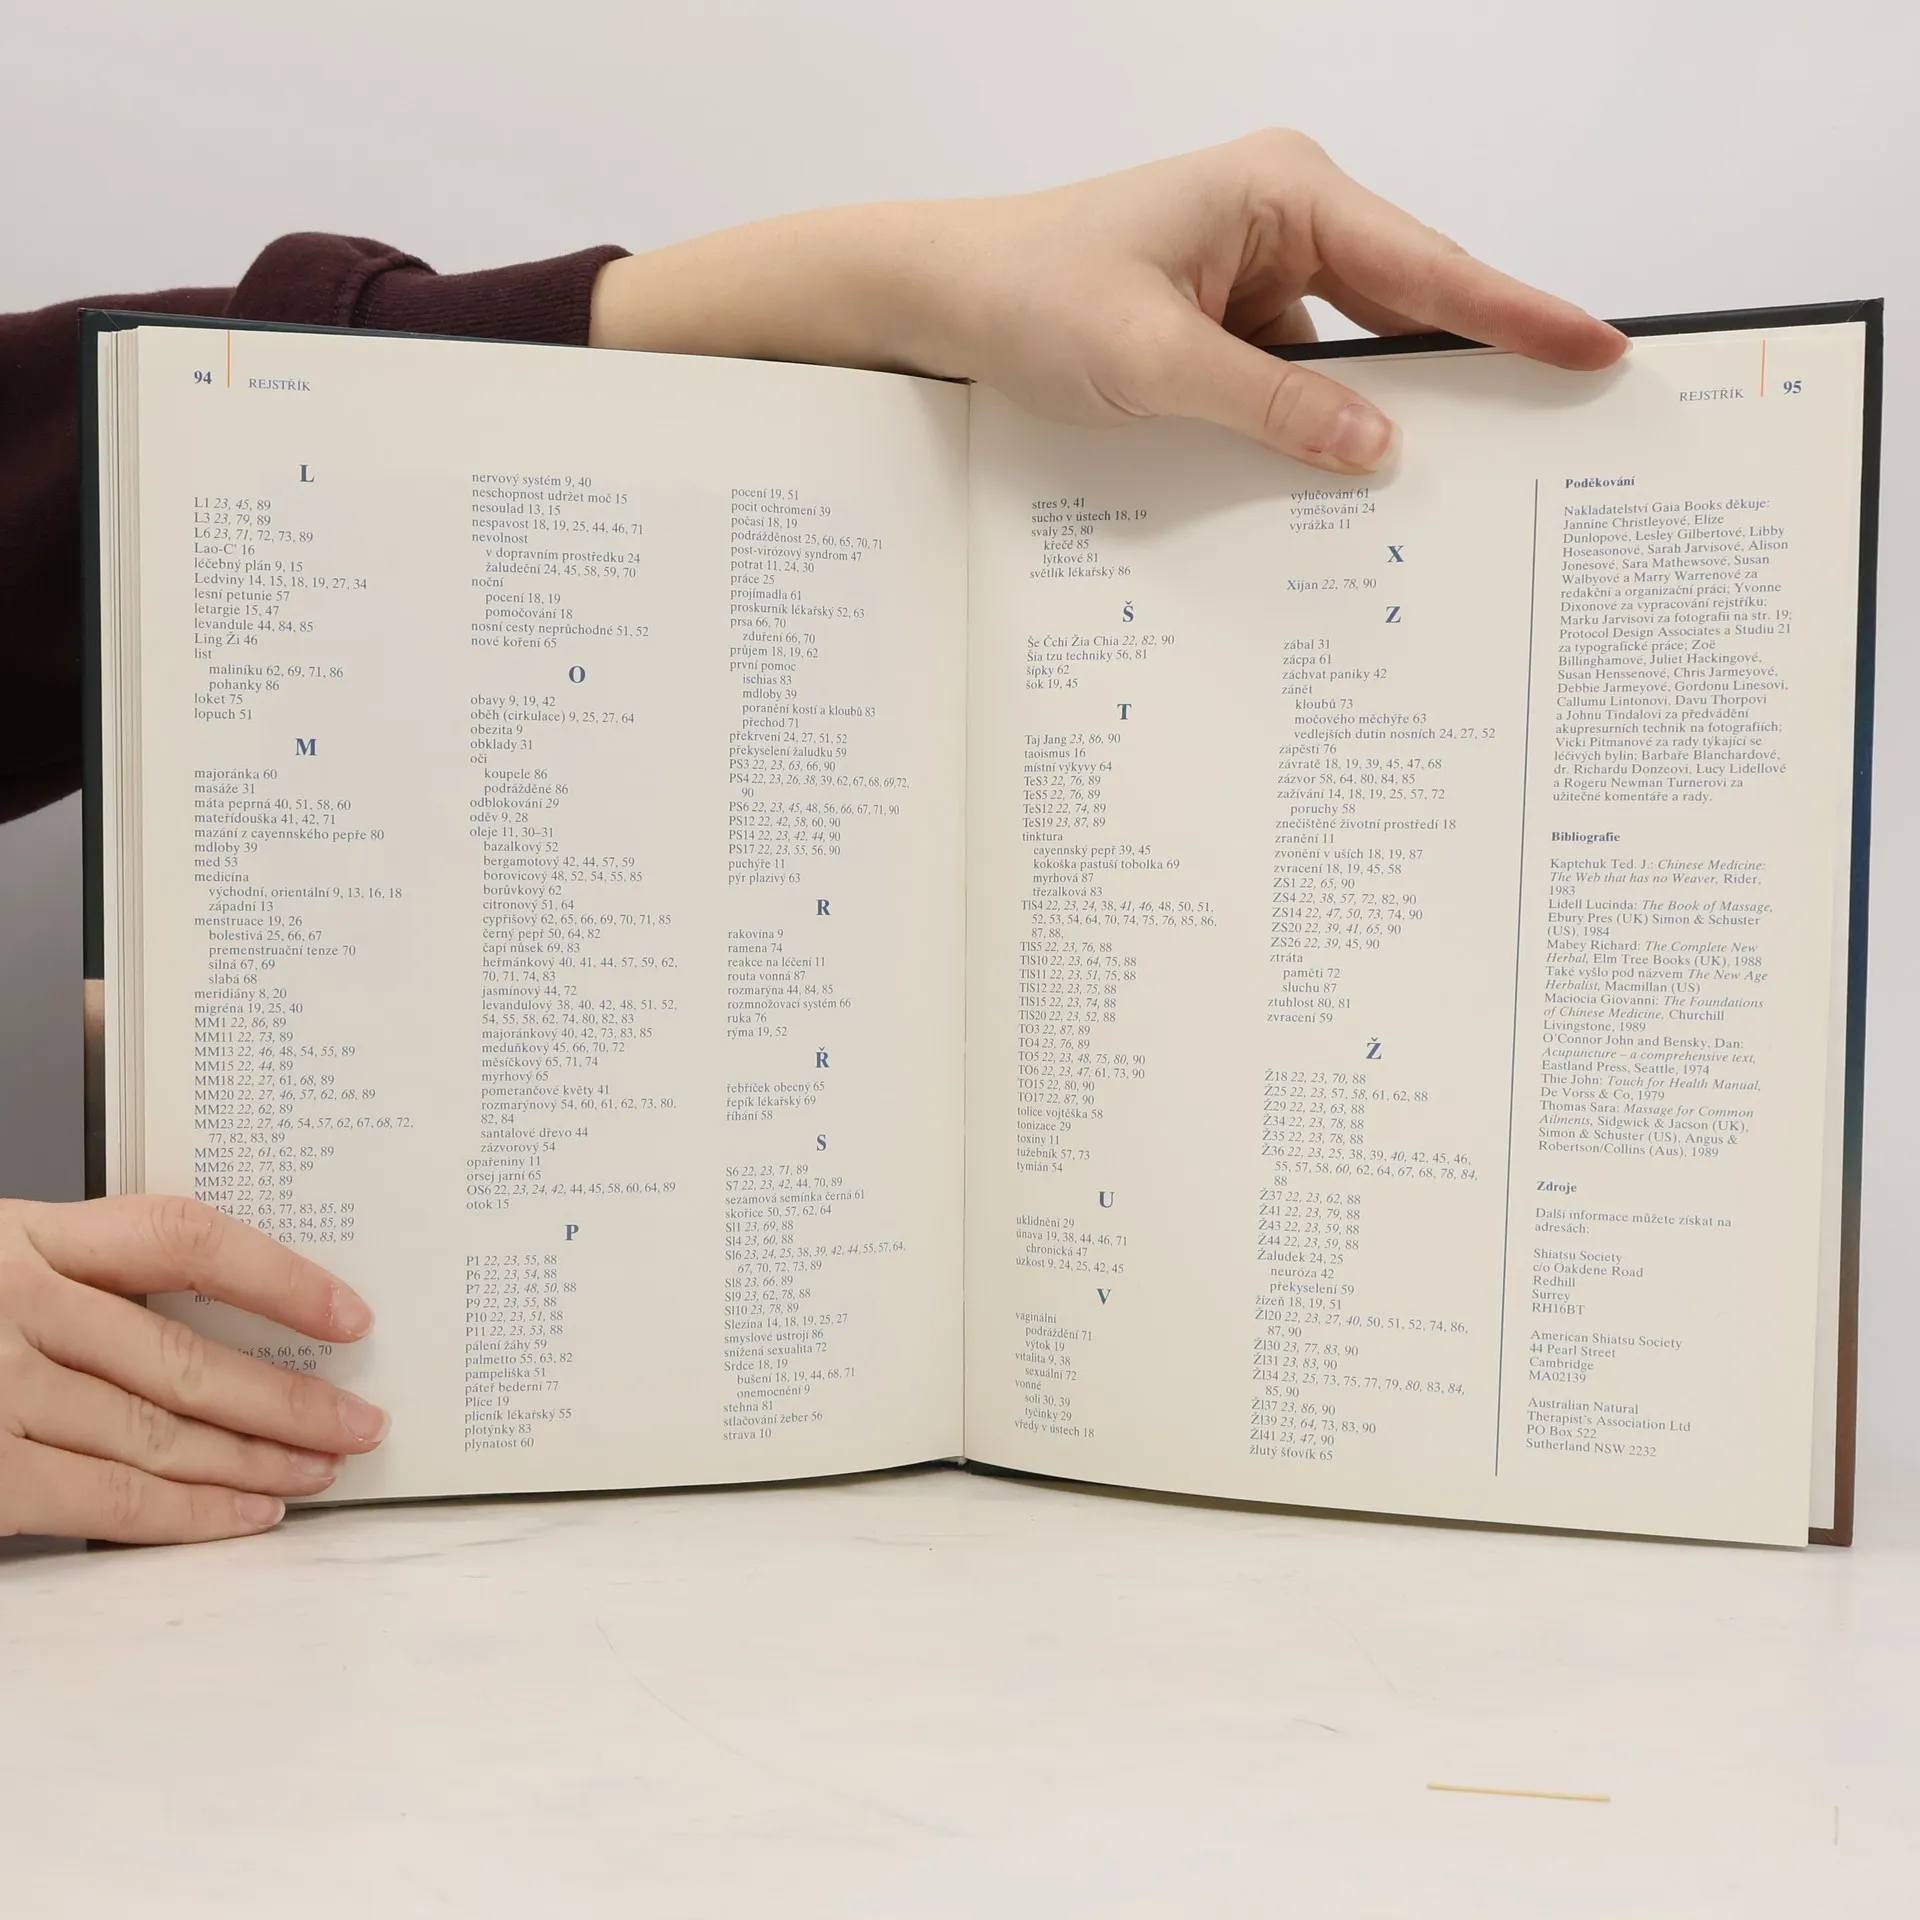 94
REJSTŘÍK
L
L1 23, 45, 89
L3 23, 79, 89
L6 23, 71, 72, 73, 89
Lao-C' 16
léčebný plán 9, 15
Ledviny 14, 15, 18, 19, 27, 34
lesní petunie 57
letargie 15, 47
levandule 44, 84, 85
Ling Ži 46
list
maliníku 62, 69, 71, 86
pohanky 86
loket 75
lopuch 51
M
majoránka 60
masáže 31
máta peprná 40, 51, 58, 60
mateřídouška 41, 42, 71
mazání z cayennského pepře 80
mdloby 39
med 53
medicína
východní, orientální 9, 13, 16, 18
západní 13
menstruace 19, 26
bolestivá 25, 66, 67
premenstruační tenze 70
silná 67, 69
slabá 68
meridiány 8, 20
migréna 19, 25, 40
MM1 22, 86, 89
MM11 22, 73, 89
MM13 22, 46, 48, 54, 55, 89
MM15 22, 44, 89
MM18 22, 27, 61, 68, 89
MM20 22, 27, 46, 57, 62, 68, 89
MM22 22, 62, 89
MM23 22, 27, 46, 54, 57, 62, 67, 68, 72,
77, 82, 83, 89
MM25 22, 61, 62, 82, 89
MM26 22, 77, 83, 89
MM32 22, 63, 89
MM47 22, 72, 89
54 22, 63, 77, 83, 85, 89
65, 83, 84, 85, 89
63, 79, 83, 89
58, 60, 66, 70
27, 50
nervový systém 9, 40
neschopnost udržet moč 15
nesoulad 13, 15
nespavost 18, 19, 25, 44, 46, 71
nevolnost
v dopravním prostředku 24
žaludeční 24, 45, 58, 59, 70
noční
pocení 18, 19
pomočování 18
nosní cesty neprůchodné 51, 52
nové koření 65
O
obavy 9, 19, 42
oběh (cirkulace) 9, 25, 27, 64
obezita 9
obklady 31
oči
koupele 86
podrážděné 86
odblokování 29
oděv 9, 28
oleje 11, 30–31
bazalkový 52
bergamotový 42, 44, 57, 59
borovicový 48, 52, 54, 55, 85
borůvkový 62
citronový 51, 64
cypřišový 62, 65, 66, 69, 70, 71, 85
černý pepř 50, 64, 82
čapí nůsek 69, 83
heřmánkový 40, 41, 44, 57, 59, 62,
70, 71, 74, 83
jasmínový 44, 72
levandulový 38, 40, 42, 48, 51, 52,
54, 55, 58, 62, 74, 80, 82, 83
majoránkový 40, 42, 73, 83, 85
meduňkový 45, 66, 70, 72
měsíčkový 65, 71, 74
myrhový 65
pomerančové květy 41
rozmarýnový 54, 60, 61, 62, 73, 80,
82, 84
santalové dřevo 44
zázvorový 54
opařeniny 11
orsej jarní 65
OS6 22, 23, 24, 42, 44, 45, 58, 60, 64, 89
otok 15
P
P1 22, 23, 55, 88
P6 22, 23, 54, 88
P7 22, 23, 48, 50, 88
P9 22, 23, 55, 88
P10 22, 23, 51, 88
P11 22, 23, 53, 88
pálení žáhy 59
palmetto 55, 63, 82
pampeliška 51
páteř bederní 77
Plíce 19
plicník lékařský 55
plotýnky 83
plynatost 60
pocení 19, 51
pocit ochromení 39
počasí 18, 19
podrážděnost 25, 60, 65, 70, 71
post-virózový syndrom 47
potrat 11, 24, 30
práce 25
projímadla 61
proskurník lékařský 52, 63
prsa 66, 70
zduření 66, 70
průjem 18, 19, 62
první pomoc
ischias 83
mdloby 39
poranění kostí a kloubů 83
přechod 71
překrvení 24, 27, 51, 52
překyselení žaludku 59
PS3 22, 23, 63, 66, 90
PS4 22, 23, 26, 38, 39, 62, 67, 68, 69, 72,
90
PS6 22, 23, 45, 48, 56, 66, 67, 71, 90
PS12 22, 42, 58, 60, 90
PS14 22, 23, 42, 44, 90
PS17 22, 23, 55, 56, 90
puchýře 11
pýr plazivý 63
R
rakovina 9
ramena 74
reakce na léčení 11
routa vonná 87
rozmarýna 44, 84, 85
rozmnožovací systém 66
ruka 76
rýma 19, 52
Ř
řebříček obecný 65
řepík lékařský 69
říhání 58
S
S6 22, 23, 71, 89
S7 22, 23, 42, 44, 70, 89
sezamová semínka černá 61
skořice 50, 57, 62, 64
Sl1 23, 69, 88
Sl4 23, 60, 88
Sl6 23, 24, 25, 38, 39, 42, 44, 55, 57, 64,
67, 70, 72, 73, 89
Sl8 23, 66, 89
Sl9 23, 62, 78, 88
Sl10 23, 78, 89
Slezina 14, 18, 19, 25, 27
smyslové ústrojí 86
snížená sexualita 72
Srdce 18, 19
bušení 18, 19, 44, 68, 71
onemocnění 9
stehna 81
stlačování žeber 56
strava 10
REJSTŘÍK
95
stres 9, 41
sucho v ústech 18, 19
svaly 25, 80
křečě 85
lýtkové 81
světlík lékařský 86
Š
Še Čchi Žia Chia 22, 82, 90
Šia tzu techniky 56, 81
šípky 62
šok 19, 45
T
Taj Jang 23, 86, 90
taoismus 16
místní výkyvy 64
TeS3 22, 76, 89
TeS5 22, 76, 89
TeS12 22, 74, 89
TeS19 23, 87, 89
tinktura
cayennský pepř 39, 45
kokoška pastuší tobolka 69
myrhová 87
třezalková 83
TlS4 22, 23, 24, 38, 41, 46, 48, 50, 51,
52, 53, 54, 64, 70, 74, 75, 76, 85, 86,
87, 88,
TlS5 22, 23, 76, 88
TlS10 22, 23, 64, 75, 88
TlS11 22, 23, 51, 75, 88
TlS12 22, 23, 75, 88
TlS15 22, 23, 74, 88
TlS20 22, 23, 52, 88
TO3 22, 87, 89
TO4 23, 76, 89
TO5 22, 23, 48, 75, 80, 90
TO6 22, 23, 47, 61, 73, 90
TO15 22, 80, 90
TO17 22, 87, 90
tolice vojtěška 58
tonizace 29
toxiny 11
tužebník 57, 73
tymián 54
U
uklidnění 29
únava 19, 38, 44, 46, 71
chronická 47
úzkost 9, 24, 25, 42, 45
V
vaginální
podráždění 71
výtok 19
vitalita 9, 38
sexuální 72
vonné
soli 30, 39
tyčinky 29
vředy v ústech 18
vylučování 61
vyměšování 24
vyrážka 11
X
Xijan 22, 78, 90
Z
zábal 31
zácpa 61
záchvat paniky 42
zánět
kloubů 73
močového měchýře 63
vedlejších dutin nosních 24, 27, 52
zápěstí 76
závratě 18, 19, 39, 45, 47, 68
zázvor 58, 64, 80, 84, 85
zažívání 14, 18, 19, 25, 57, 72
poruchy 58
znečištěné životní prostředí 18
zranění 11
zvonění v uších 18, 19, 87
zvracení 18, 19, 45, 58
ZS1 22, 65, 90
ZS4 22, 38, 57, 72, 82, 90
ZS14 22, 47, 50, 73, 74, 90
ZS20 22, 39, 41, 65, 90
ZS26 22, 39, 45, 90
ztráta
paměti 72
sluchu 87
ztuhlost 80, 81
zvracení 59
Ž
Ž18 22, 23, 70, 88
Ž25 22, 23, 57, 58, 61, 62, 88
Ž29 22, 23, 63, 88
Ž34 22, 23, 78, 88
Ž35 22, 23, 78, 88
Ž36 22, 23, 25, 38, 39, 40, 42, 45, 46,
55, 57, 58, 60, 62, 64, 67, 68, 78, 84,
88
Ž37 22, 23, 62, 88
Ž41 22, 23, 79, 88
Ž43 22, 23, 59, 88
Ž44 22, 23, 59, 88
Žaludek 24, 25
neuróza 42
překyselení 59
žízeň 18, 19, 51
Žl20 22, 23, 27, 40, 50, 51, 52, 74, 86,
87, 90
Žl30 23, 77, 83, 90
Žl31 23, 83, 90
Žl34 23, 25, 73, 75, 77, 79, 80, 83, 84,
85, 90
Žl37 23, 86, 90
Žl39 23, 64, 73, 83, 90
Žl41 23, 47, 90
žlutý šťovík 65
Poděkování
Nakladatelství Gaia Books děkuje:
Jannine Christleyové, Elize
Dunlopové, Lesley Gilbertové, Libby
Hoseasonové, Sarah Jarvisové, Alison
Jonesové, Sara Mathewsové, Susan
Walbyové a Marry Warrenové za
redakční a organizační práci; Yvonne
Dixonové za vypracování rejstříku;
Marku Jarvisovi za fotografii na str. 19;
Protocol Design Associates a Studiu 21
za typografické práce; Zoë
Billinghamové, Juliet Hackingové,
Susan Henssenové, Chris Jarmeyové,
Debbie Jarmeyové, Gordonu Linesovi,
Callumu Lintonovi, Davu Thorpovi
a Johnu Tindalovi za předvádění
akupresurních technik na fotografiích;
Vicki Pitmanové za rady týkající se
léčivých bylin; Barbaře Blanchardové,
dr. Richardu Donzeovi, Lucy Lidellové
a Rogeru Newman Turnerovi za
užitečné komentáře a rady.
Bibliografie
Kaptchuk Ted. J.: Chinese Medicine:
The Web that has no Weaver, Rider,
1983
Lidell Lucinda: The Book of Massage,
Ebury Pres (UK) Simon & Schuster
(US), 1984
Mabey Richard: The Complete New
Herbal, Elm Tree Books (UK), 1988
Také vyšlo pod názvem The New Age
Herbalist, Macmillan (US)
Maciocia Giovanni: The Foundations
of Chinese Medicine, Churchill
Livingstone, 1989
O'Connor John and Bensky, Dan:
Acupuncture – a comprehensive text,
Eastland Press, Seattle, 1974
Thie John: Touch for Health Manual,
De Vorss & Co, 1979
Thomas Sara: Massage for Common
Ailments, Sidgwick & Jacson (UK),
Simon & Schuster (US), Angus &
Robertson/Collins (Aus), 1989
Zdroje
Další informace můžete získat na
adresách:
Shiatsu Society
c/o Oakdene Road
Redhill
Surrey
RH16BT
American Shiatsu Society
44 Pearl Street
Cambridge
MA02139
Australian Natural
Therapist's Association Ltd
PO Box 522
Sutherland NSW 2232